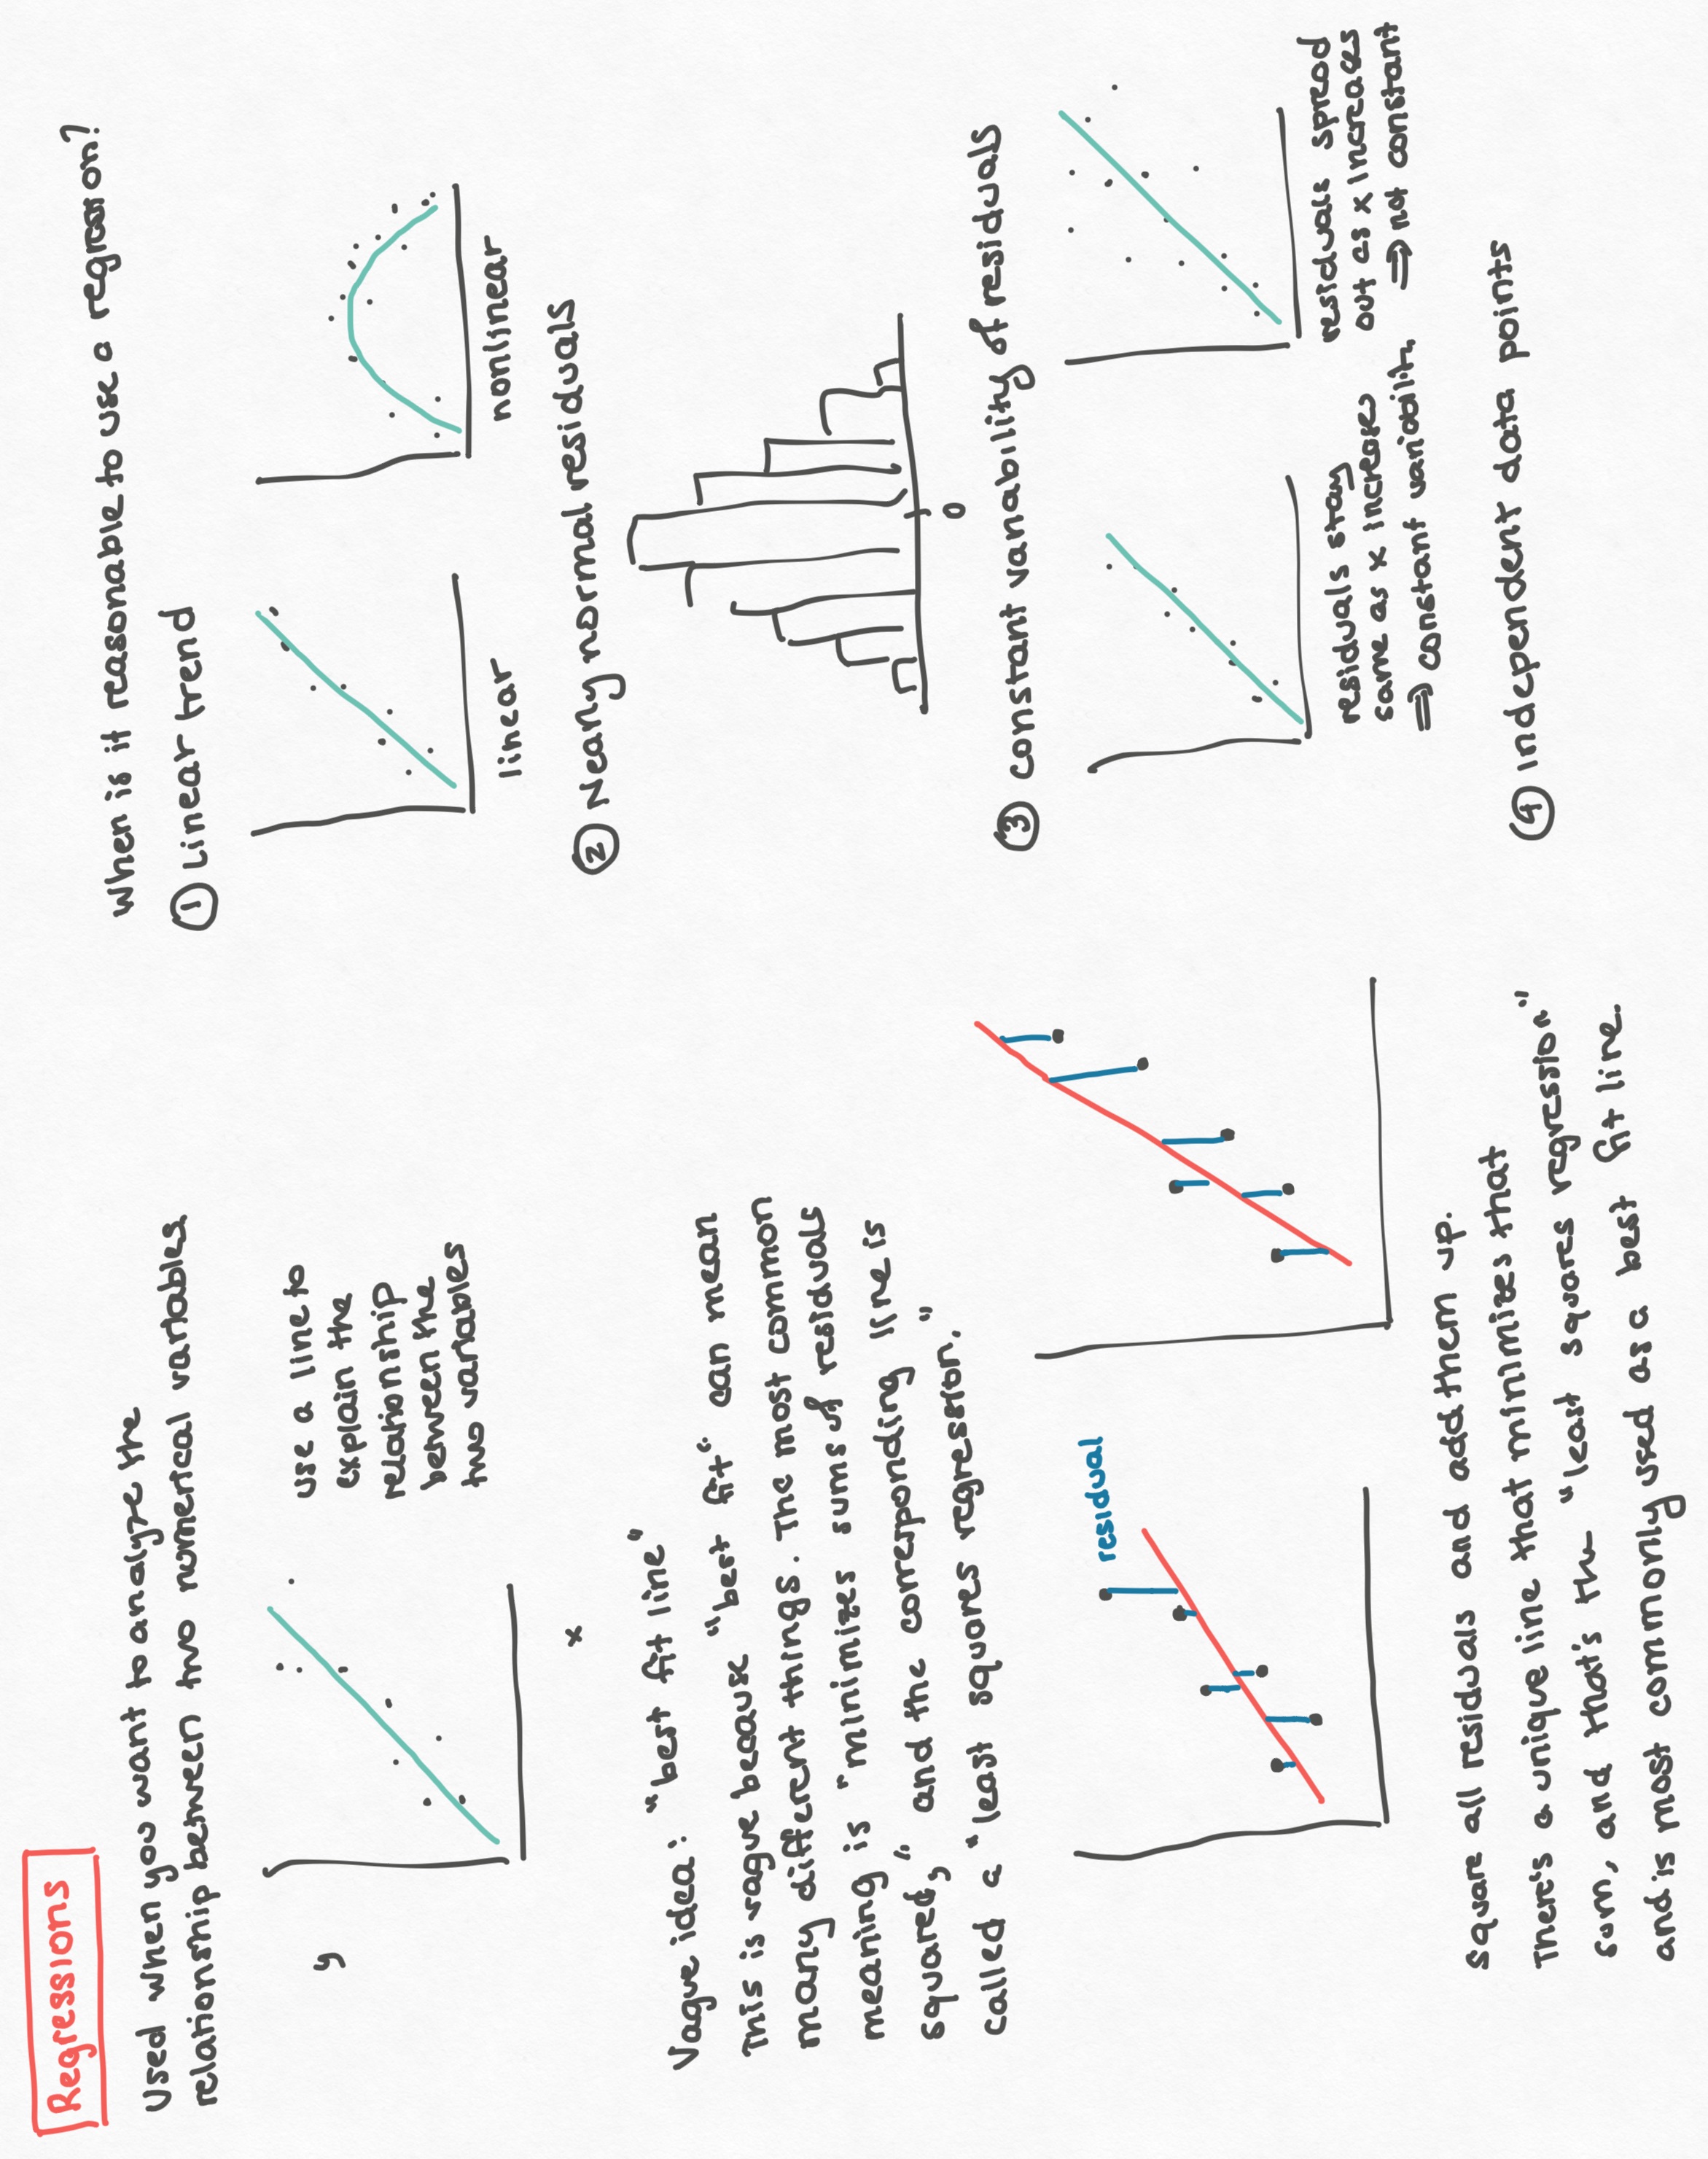 Regressions
Used when you want to analyze the
relationship between two numerical variables.
y
x
use a line to
explain the
relationship
between the
two variables
Vague idea: "best fit line"
This is vague because "best fit" can mean
many different things. The most common
meaning is "minimizes sums of residuals
squared," and the corresponding line is
called a "least squares regression."
residual
Square all residuals and add them up.
There's a unique line that minimizes that
sum, and that's the "least squares regression"
and is most commonly used as a best fit line.
When is it reasonable to use a regression?
① Linear trend
linear
nonlinear
② Nearly normal residuals
0
③ constant variability of residuals
residuals stay
same as x increases
⇒ constant variability
residuals spread
out as x increases
⇒ not constant
④ Independent data points